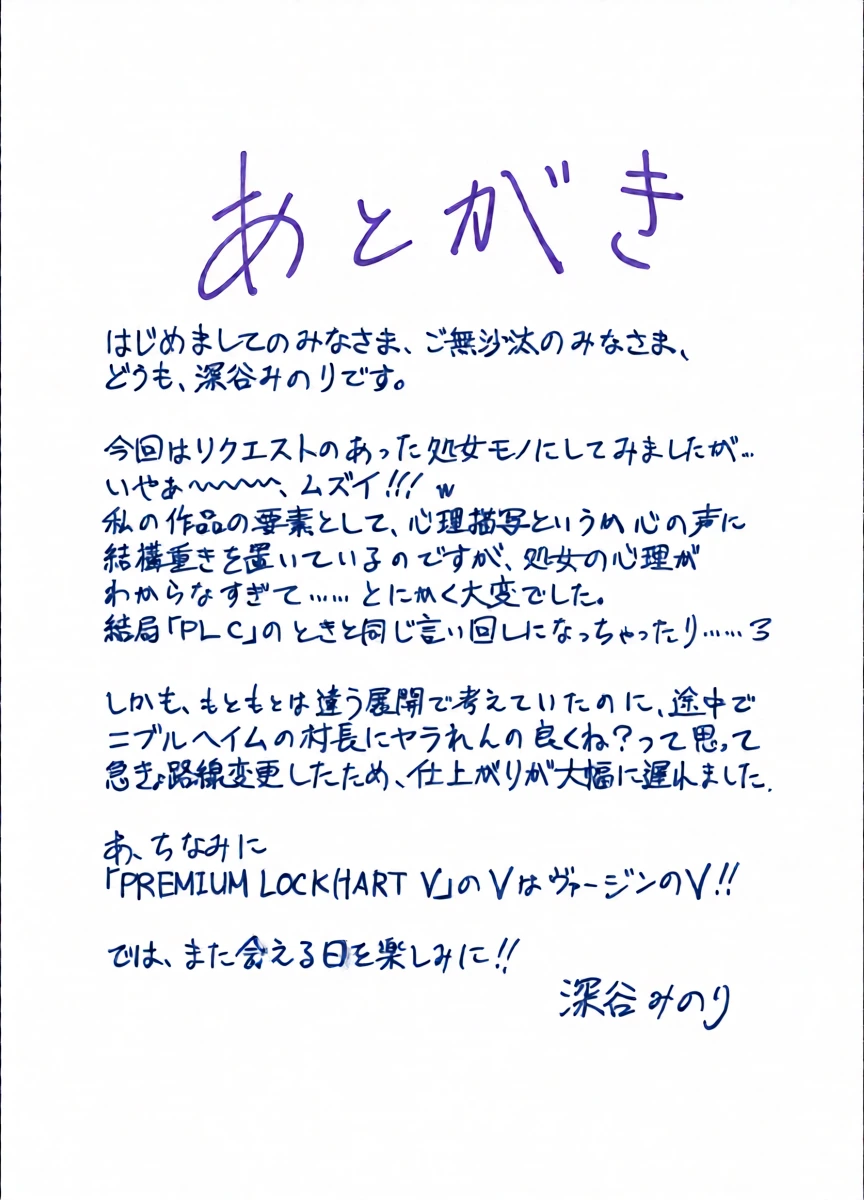 あとがき
はじめましてのみなさま、ご無沙汰のみなさま、
どうも、深谷みのりです。
今回はリクエストのあった処女モノにしてみましたが…
いやぁ〜〜〜〜、ムズイ!!! w
私の作品の要素として、心理描写というか心の声に
結構重きを置いているのですが、処女の心理が
わからなすぎて……とにかく大変でした。
結局「PLC」のときと同じ言い回しになっちゃったり……ろ
しかも、もともとは違う展開で考えていたのに、途中で
ニブルヘイムの村長にヤラれんの良くね?って思って
急きょ路線変更したため、仕上がりが大幅に遅れました.
あ、ちなみに
「PREMIUM LOCKHART V」のVはヴァージンのV!!
では、また会える日を楽しみに!!
深谷みのり